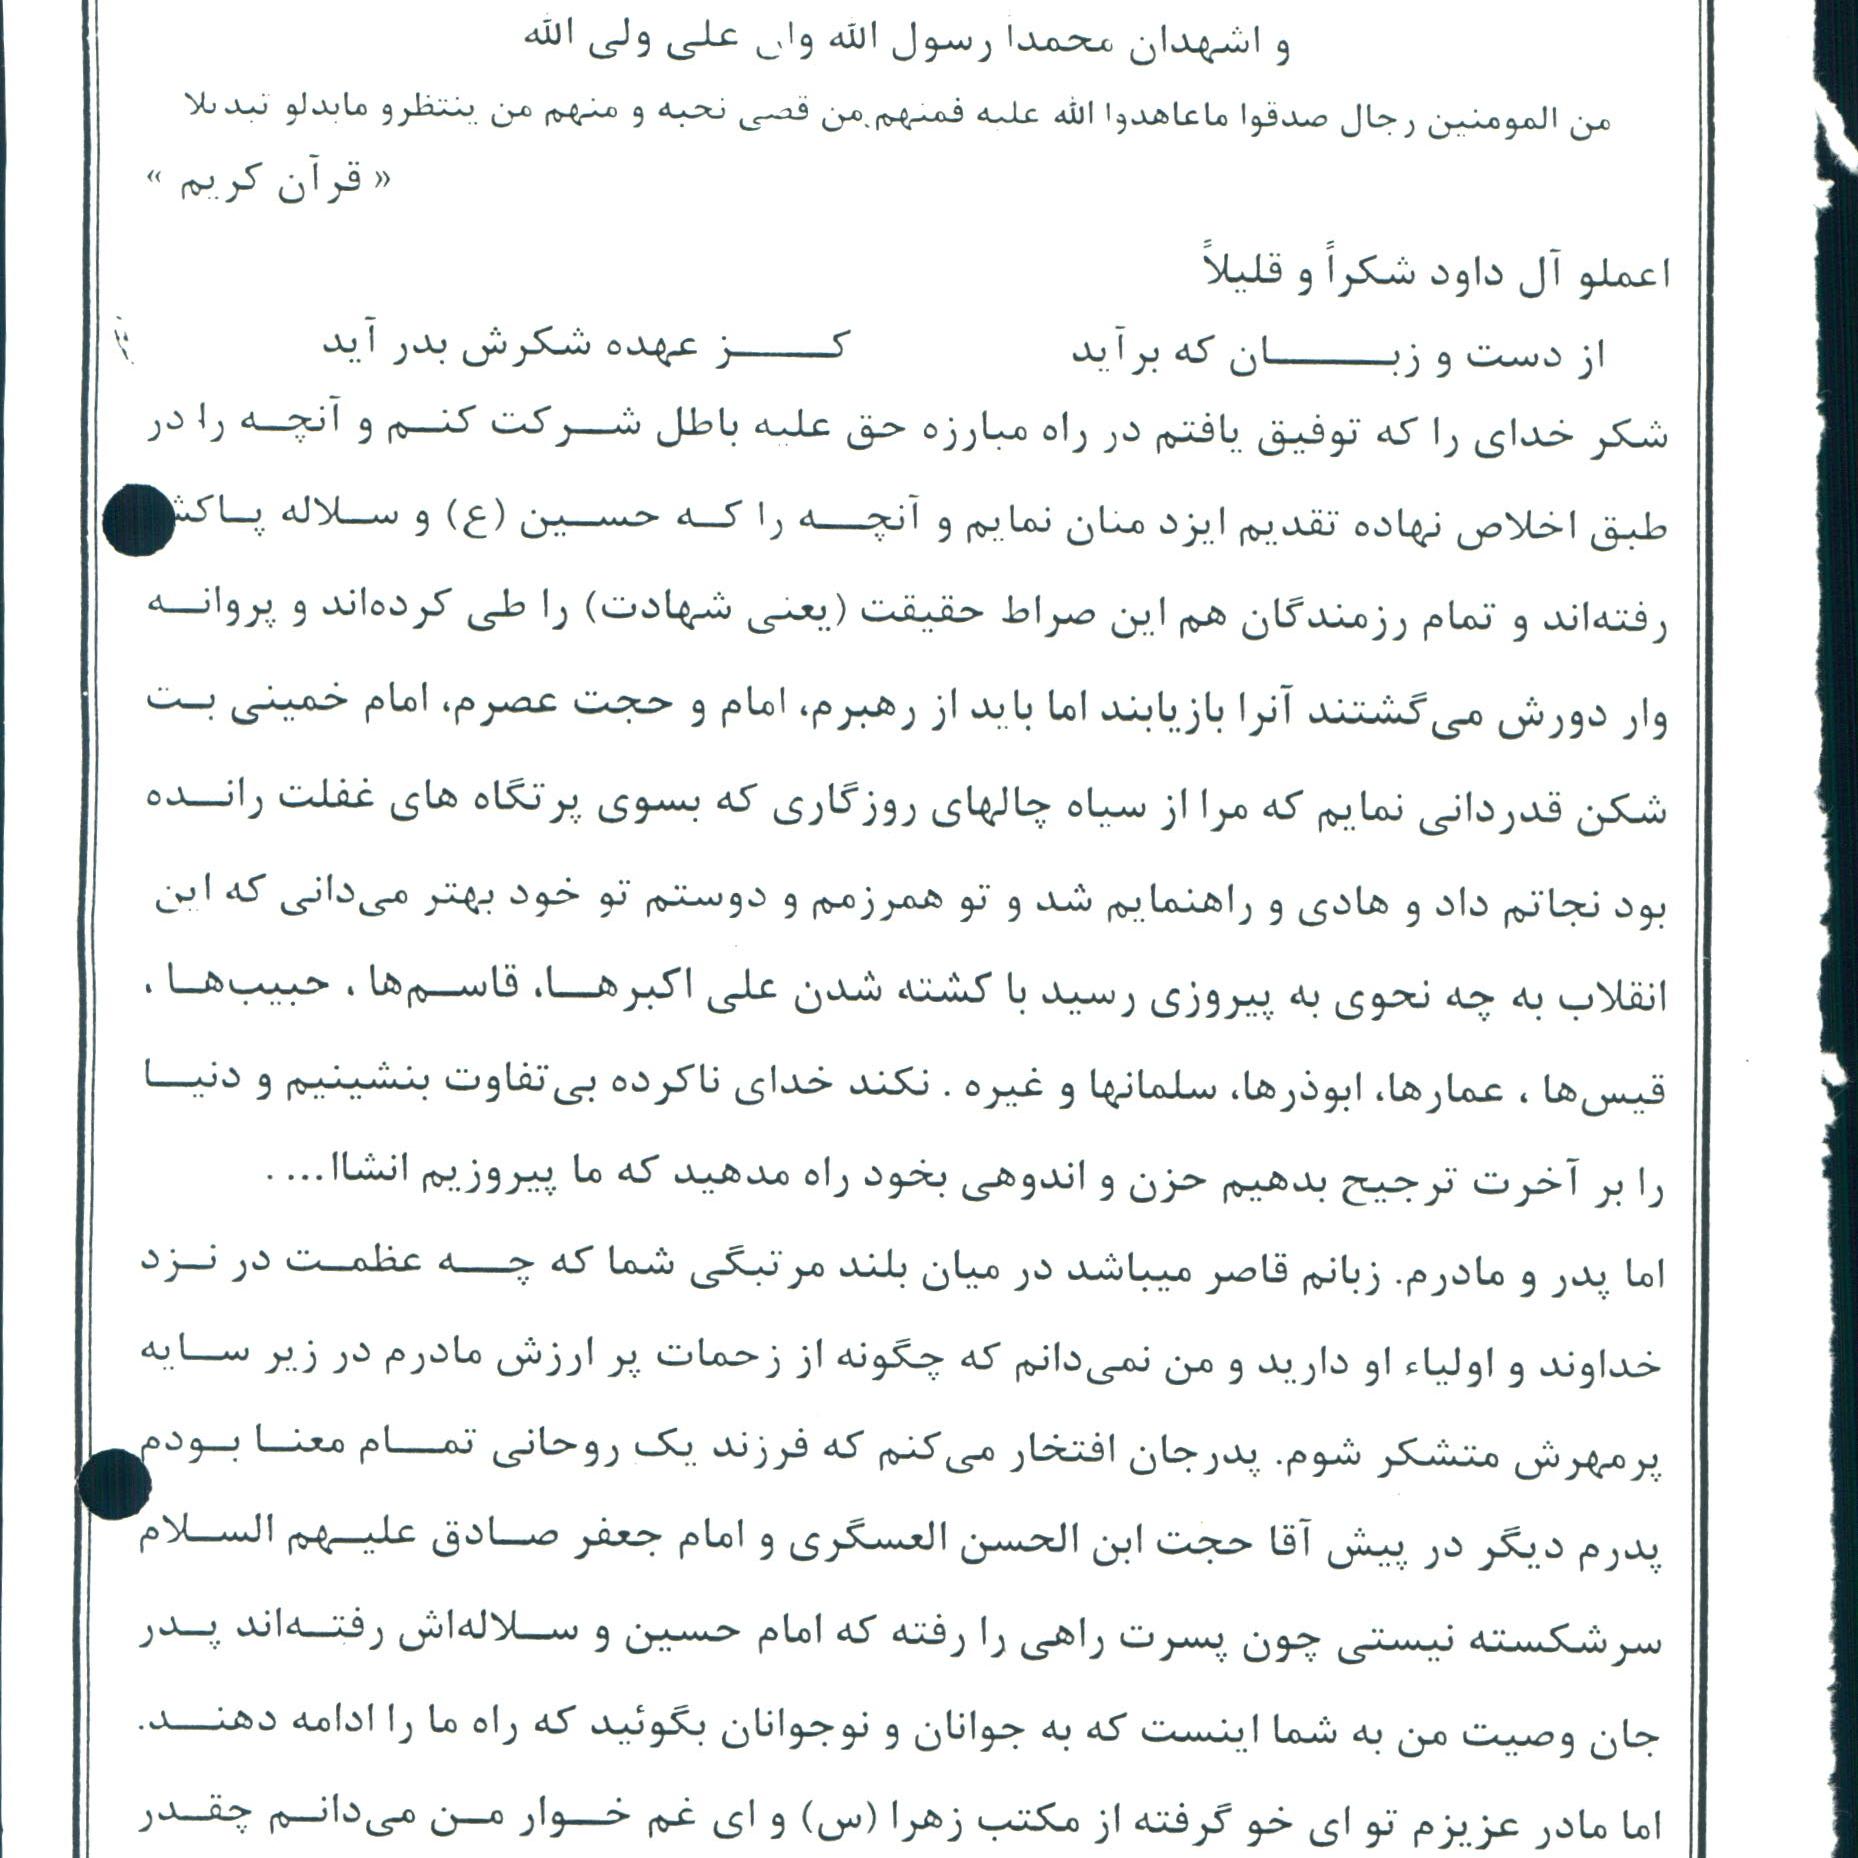 و اشهدان محمدا رسول الله وان علی ولی الله
من المومنین رجال صدقوا ماعاهدوا الله علیه فمنهم من قضی نحبه و منهم من ینتظرو مابدلو تبدیلا
« قرآن کریم »
اعملو آل داود شکراً و قلیلاً
از دست و زبـــــان که برآید کـــــز عهده شکرش بدر آید
شکر خدای را که توفیق یافتم در راه مبارزه حق علیه باطل شـــرکت کنــم و آنچــه را در
طبق اخلاص نهاده تقدیم ایزد منان نمایم و آنچـــه را کــه حســین (ع) و ســلاله پــاکش
رفته‌اند و تمام رزمندگان هم این صراط حقیقت (یعنی شهادت) را طی کرده‌اند و پروانــه
وار دورش می‌گشتند آنرا بازیابند اما باید از رهبرم، امام و حجت عصرم، امام خمینی بــت
شکن قدردانی نمایم که مرا از سیاه چالهای روزگاری که بسوی پرتگاه های غفلت رانــده
بود نجاتم داد و هادی و راهنمایم شد و تو همرزمم و دوستم تو خود بهتر می‌دانی که این
انقلاب به چه نحوی به پیروزی رسید با کشته شدن علی اکبرهــا، قاســم‌ها ، حبیب‌هــا ،
قیس‌ها ، عمارها، ابوذرها، سلمانها و غیره . نکند خدای ناکرده بی‌تفاوت بنشینیم و دنیــا
را بر آخرت ترجیح بدهیم حزن و اندوهی بخود راه مدهید که ما پیروزیم انشاا... .
اما پدر و مادرم. زبانم قاصر میباشد در میان بلند مرتبگی شما که چـــه عظمــت در نــزد
خداوند و اولیاء او دارید و من نمی‌دانم که چگونه از زحمات پر ارزش مادرم در زیر ســایه
پرمهرش متشکر شوم. پدرجان افتخار می‌کنم که فرزند یک روحانی تمـــام معنــا بــودم
پدرم دیگر در پیش آقا حجت ابن الحسن العسگری و امام جعفر صــادق علیــهم الســلام
سرشکسته نیستی چون پسرت راهی را رفته که امام حسین و ســلاله‌اش رفتــه‌اند پــدر
جان وصیت من به شما اینست که به جوانان و نوجوانان بگوئید که راه ما را ادامه دهنــد.
اما مادر عزیزم تو ای خو گرفته از مکتب زهرا (س) و ای غم خــوار مــن می‌دانــم چقــدر